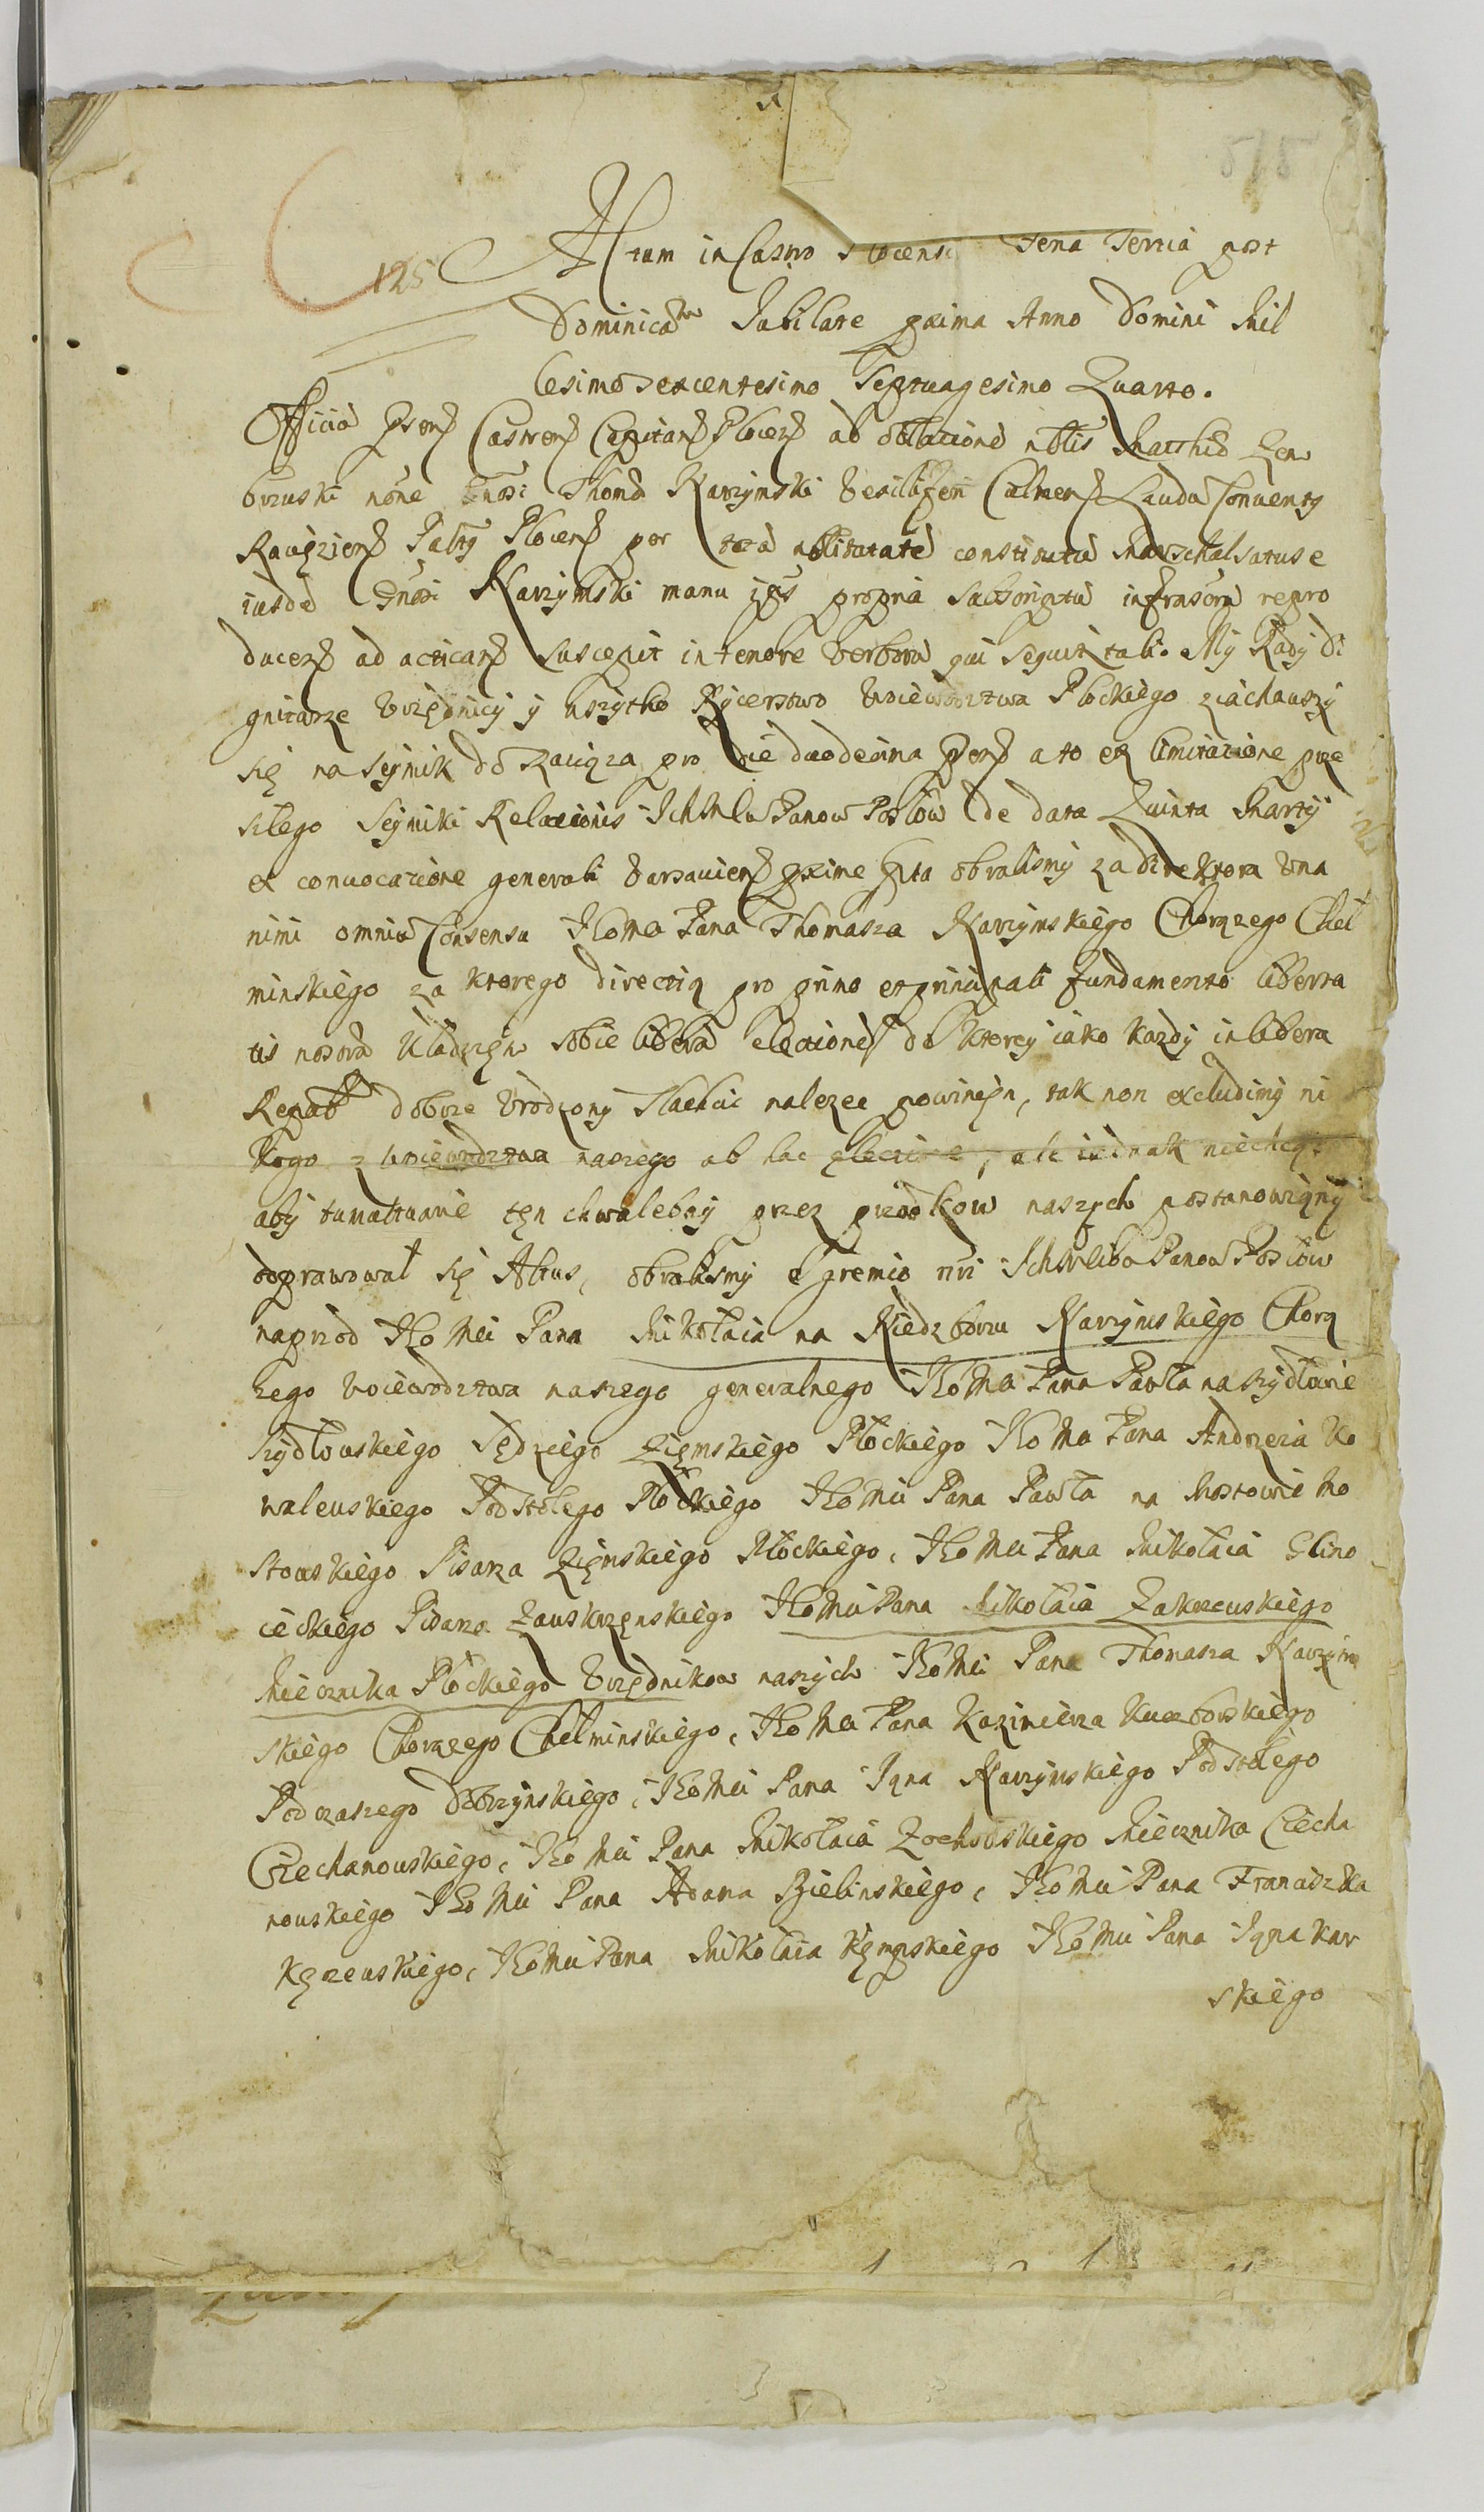 515
125
Actum in Castro Plocensi Feria Tertia post
Dominicam Jubilate proxima Anno Domini Mil
lesimo Sexcentesimo Septuagesimo Quarto.
Officiũ Pñs Castren̄ Capitan̄ Plocen̄ ad oblationẽ nblis Matthiæ
brzuski nõne Gñosi Thomæ Narzymski Vexilliferi Culmen̄ Lauda Conuentq
Raciązien̄ Palttq Plocen̄ per totã nbilitatẽ constitutũ Marschalsatus e
iusdẽ Gnosi Narzymski manu eius propria Subscriptũ infrascrip repro
ducen̄ ad actican̄ suscepit in tenore verborũ qui sequitr tali. My Rady Di
gnitarze Vrzędnicy y wszytko Rycerstwo Woiewodztwa Płockiego ziachawszy
się na Seymik do Raciąza pro die duodecima Pñs a to ex limitatione prze
szłego Seymiku Relationis IchMciow Panow Posłow de data Quinta Martij
ex conuocatione generali Varsauien̄ proxime pñta obralismy za direktora Vna
nimi omniũ Consensu JEo Mci Pana Thomasza Narzymskiego Chorązego Cheł
minskiego za ktorego directią pro primo et principali fundamento liberta
tis nostrã kładziem sobie liberã electionẽ do ktorey iako kazdy in libera
Repub dobrze Vrodzony Slachcic nalezec powinięn, tak non excludimy ni
kogo z Woiewodztwa naszego ab hac electione, ale iednak niechcąc
aby tumultuarie tęn chwalebny przez przodkow naszych postanowiąny
odprawował się Aktus, obralismy e gremio nri IchMciow Panow Posłow
naprzod JEo Mci Pana Mikołaia na Niedzborzu Narzymskiego Chorą
zego Woiewodztwa naszego generalnego JEo Mci Pana Pawła na Szydłowie
Szydłowskiego Sędziego Ziemskiego Płockiego JEo Mci Pana Andrzeia Ko
walewskiego Podstolego Płockiego JEo Mci Pana Pawła na Mostowie Mo
stowskiego Pisarza Ziemskiego Płockiego, JEo Mci Pana Mikołaia Glino
ieckiego Pisarza Zawskrzenskiego JEo Mci Pana Mikołaia Zakrzewskiego
Miecznika Płockiego Vrzędnikow naszych JEo Mci Pana Thomasza Narzym
skiego Chorązego Chełminskiego, JEo Mci Pana Kazimierza Kuczborskiego
Podczaszego Dobrzynskiego, JEo Mci Pana Jana Narzymskiego Podstolego
Ciechanowskiego, JEo Mci Pana Mikołaia Zochowskiego Miecznika Ciecha
nowskiego JEo Mci Pana Adama Bielinskiego, JEo Mci Pana Franciszka
Kęczewskiego, JEo Mci Pana Mikołaia Kęmpskiego JEo Mci Pana Jana Kar
skiego